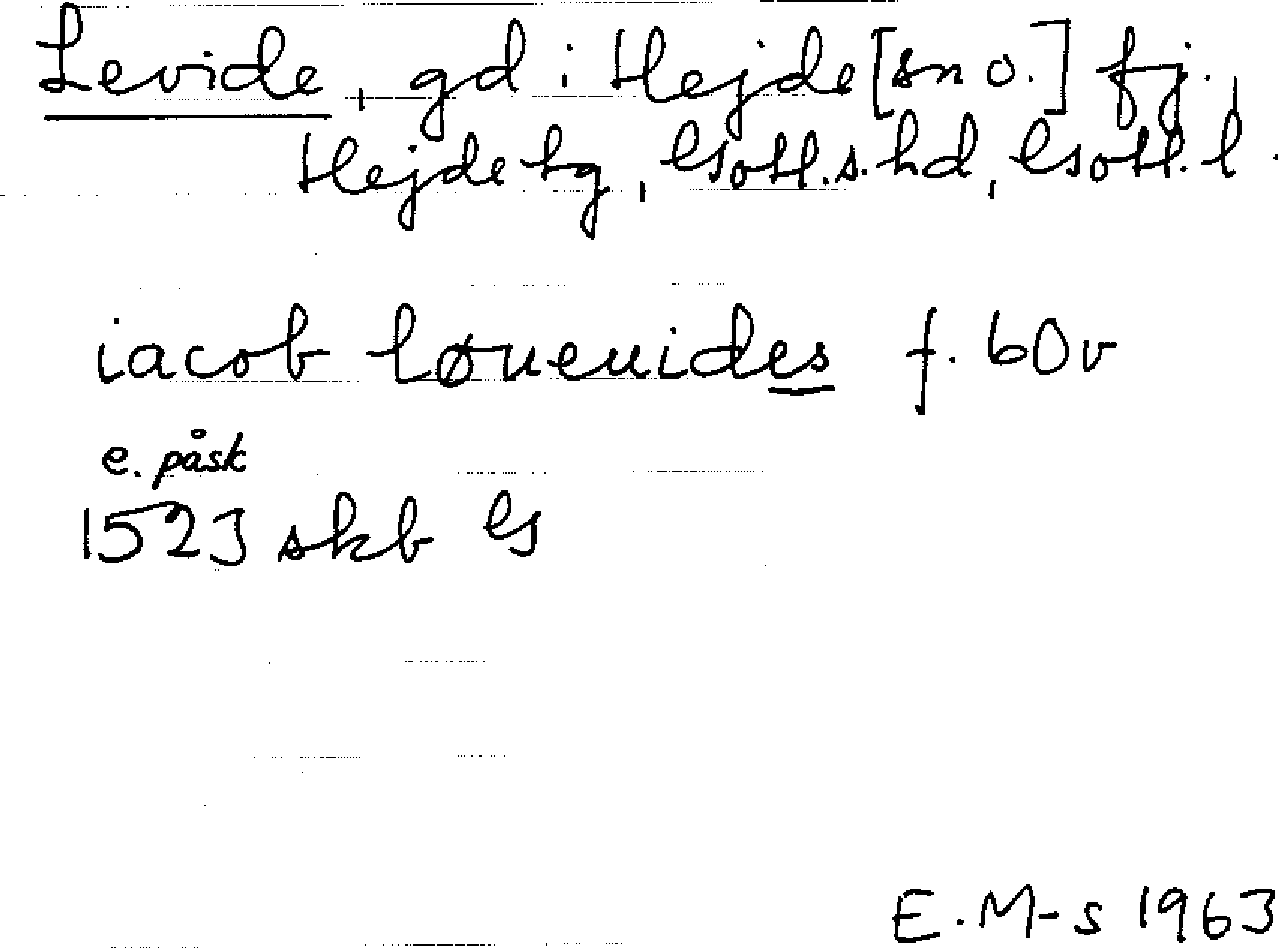 Levide, gd i Hejde [sn o.] fj.,
Hejde tg, Gotl.s.hd, Gotl.l.
iacob løueuides f. 60v
e. påsk
1523 skb G
E.M-s 1963